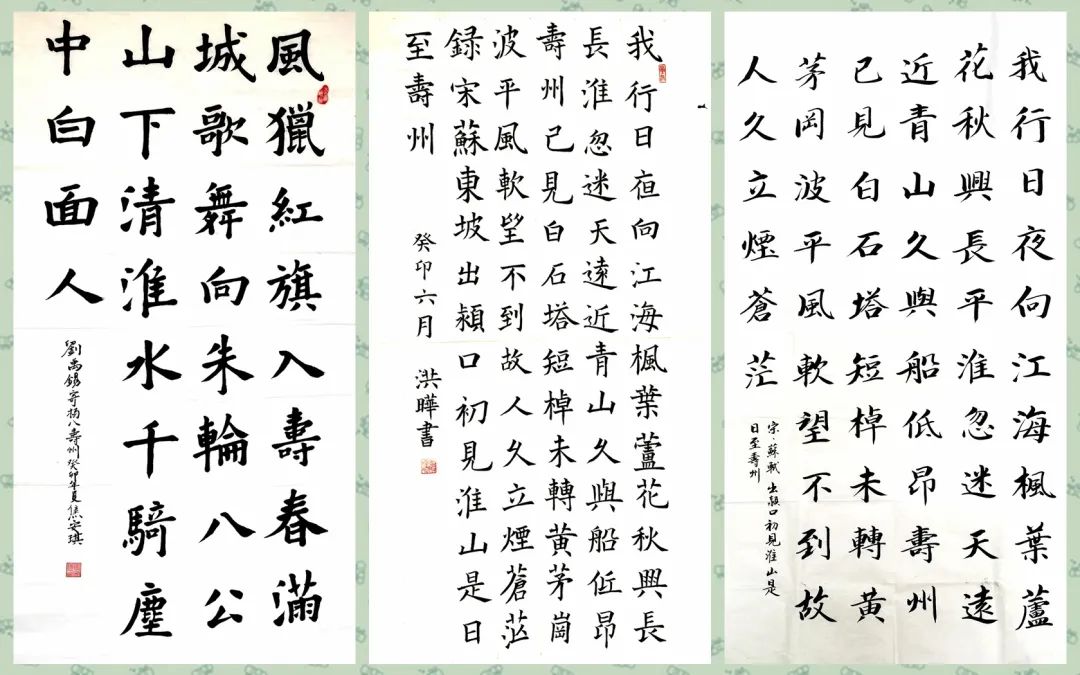 風獵紅旗入壽春滿
城歌舞向朱輪八公
山下清淮水千騎塵
中白面人
劉禹錫寄楊八壽州癸卯年夏焦安琪
我行日亱向江海楓葉蘆花秋興長
長淮忽迷天遠近青山久與船低昂
壽州已見白石塔短棹未轉黃茅崗
波平風軟望不到故人久立煙蒼茫
録宋蘇東坡出潁口初見淮山是日
至壽州 癸卯六月 洪曄書
我行日夜向江海楓葉蘆
花秋興長平淮忽迷天遠
近青山久與船低昂壽州
已見白石塔短棹未轉黃
茅岡波平風軟望不到故
人久立煙蒼茫
宋·蘇軾 出潁口初見淮山是
日至壽州